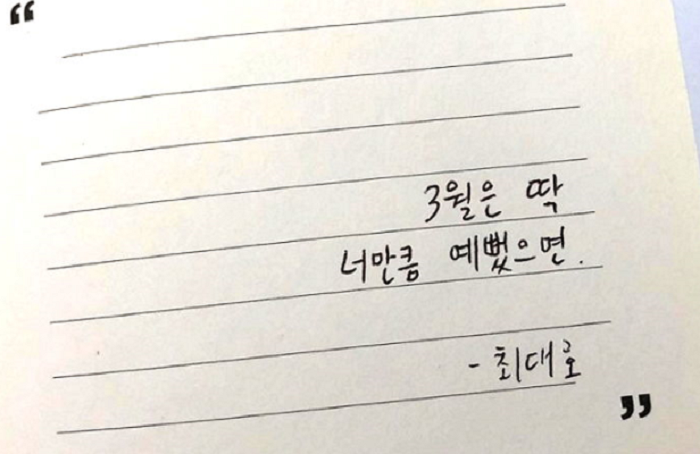 “
3월은 딱
너만큼 예뻤으면.
- 최대호
”